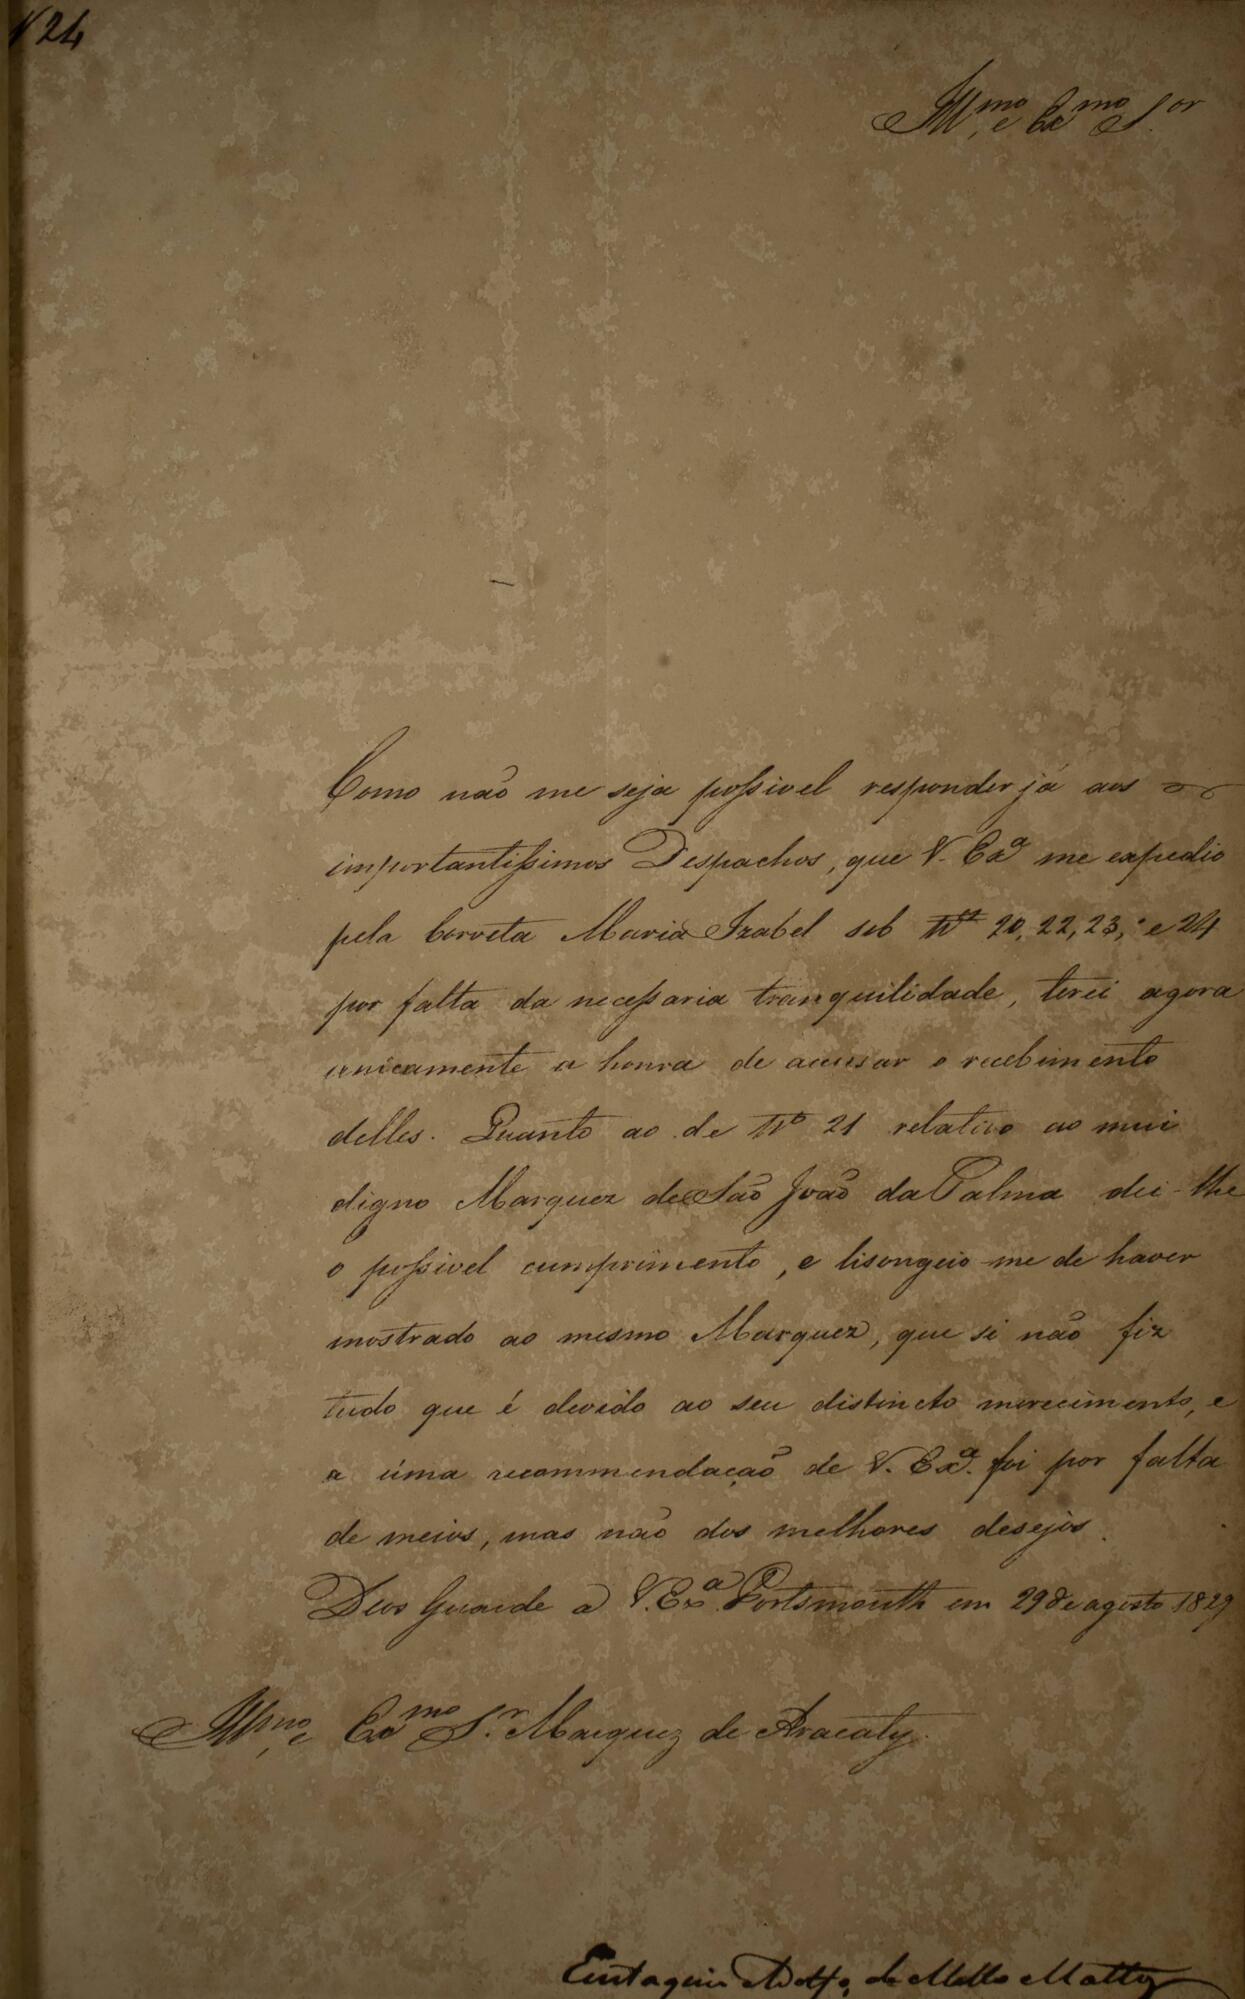 N 24
Illmo. e Exmo Sor.
Como não me seja possivel responder já aos
importantissimos Despachos, que V. Exa me expedio
pela Corveta Maria Izabel sob Nos 20, 22, 23, e 24
por falta da necessaria tranquilidade, terei agora
unicamente a honra de accusar o recebimento
delles. Quanto ao de No 21 relativo ao mui
digno Marquez de São João da Palma dei-lhe
o possivel cumprimento, e lisongeio-me de haver
mostrado ao mesmo Marquez, que si não fiz
tudo que é devido ao seu distincto merecimento, e
a úma recommendação de V. Exa. foi por falta
de meios, mas não dos melhores desejos.
Deos Guarde a V. Exa. Portsmouth em 29 de agosto 1829
Illmo. e Exmo Sr. Marquez de Aracaty.
Eustaquio Adolfo de Mello Mattos